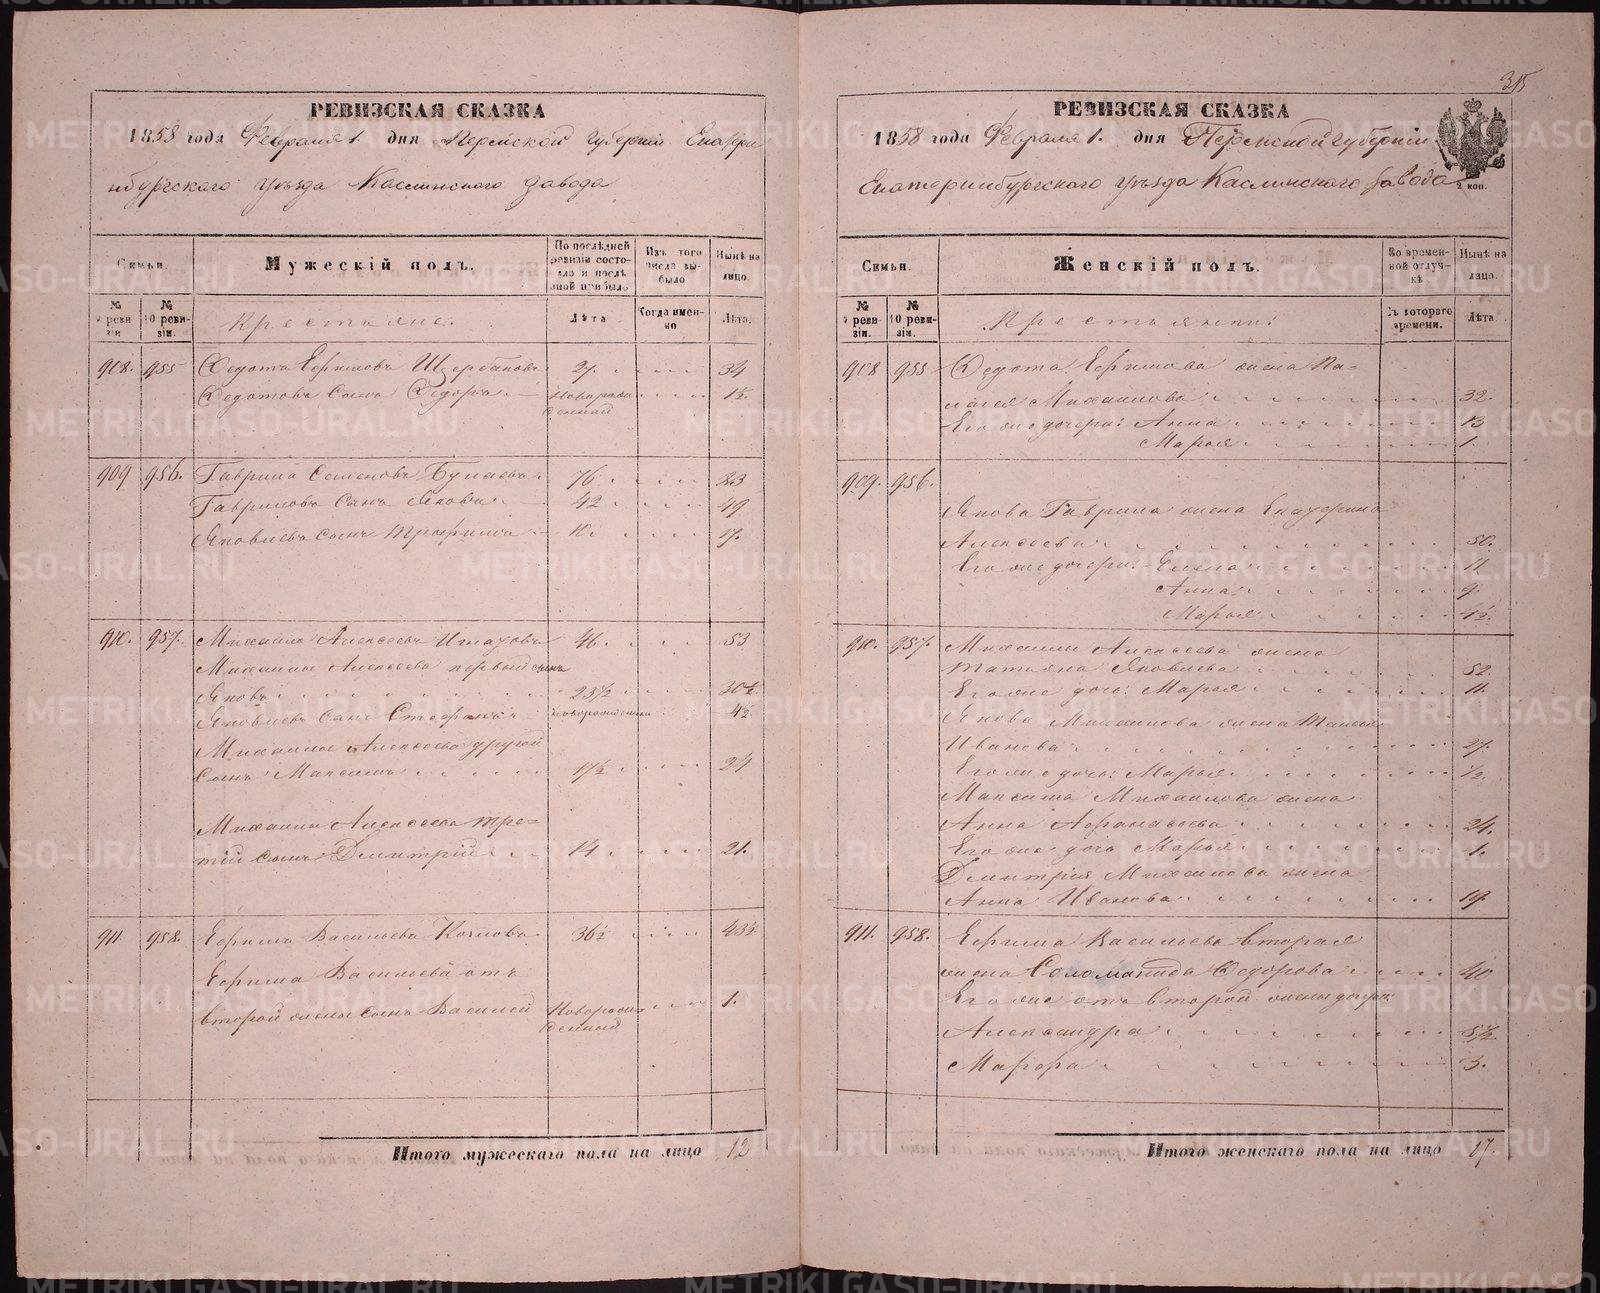 315
РЕВИЗСКАЯ СКАЗКА
1858 года Февраля 1. дня Пермской губерніи Екатери
нбургскаго уѣзда Каслинскаго завода
Семьи.
Мужескій полъ.
По послѣдней ревизіи состояло и послѣ оной прибыло
Изъ того числа выбыло
Нынѣ на лицо.
№ 9 ревизіи
№ 10 ревизіи.
Крестьяне.
Лѣта
Когда именно
Лѣта.
908. 955 Федотъ Ефимовъ Щербаковъ 27 34
Федотовъ сынъ Федоръ Новорожденный 1½
909 956. Гаврила Семеновъ 76 83
Гавриловъ сынъ Яковъ 42 49
Яковлевъ сынъ Трофимъ 10 17.
910. 957. Михайло Алексеевъ 46 53
Михайлы Алексеева первый сынъ
Яковъ 23½ 30½
Яковлевъ сынъ Стефанъ новорожденный 4½
Михайлы Алексеева другой
сынъ Максимъ 17½ 24
Михайлы Алексеева тре=
тій сынъ Дмитрій 14 21.
911 958. Ефимъ Васильевъ Козловъ 36½ 43½
Ефима Васильева отъ
второй жены сынъ Василей Новорожденный 1.
Итого мужескаго пола на лицо 12
РЕВИЗСКАЯ СКАЗКА
1858 года Февраля 1. дня Пермской губерніи
Екатеринбургскаго уѣзда Каслинскаго завода
2 коп.
Семьи.
Женскій полъ.
Во временной отлучкѣ
Нынѣ на лицо.
№ 9 ревизіи.
№ 10 ревизіи.
Крестьянки:
Съ котораго времени.
Лѣта.
908 955 Федота Ефимова жена Па-
лагея Михайлова 32.
Его же дочери: Анна 13
Марья 1.
909. 956.
Якова Гаврила жена Екатерина
Алексеева 50.
Его же дочери: Елена 11
Анна 9.
Марья 4½.
910. 957. Михаилы Алексеева жена
Татьяна Яковлева 52.
Его же дочь: Марья 11.
Якова Михайлова жена
Иванова 27.
Его же дочь: Марья ½.
Максима Михайлова жена
Анна Афанасьева 24.
Его же дочь Марья 1.
Дмитрія Михайлова жена
Анна Иванова 19.
911. 958. Ефима Васильева вторая
жена Соломанида Федорова 40
Его же отъ второй жены дочери:
Александра 5½
Марфа 3.
Итого женскаго пола на лицо 17.
METRIKI.GASO-URAL.RU